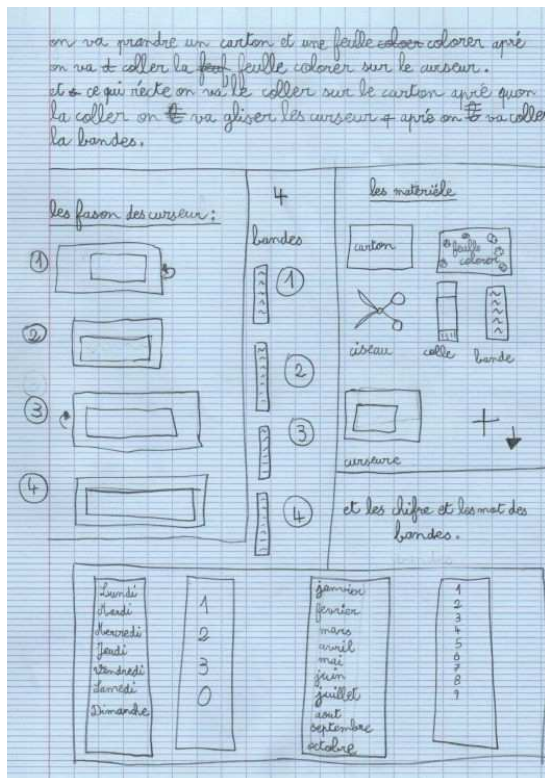 on va prandre un carton et une feulle coloer colorer apré
on va coller la feuf feulle colorér sur le curseur.
et ce qui recte on va le coller sur le carton apré quon
la coller on va gliser les curseur apré on va coller
la bandes.
les fason des curseur :
1
2
3
4
4
bandes
1
2
3
4
les materiéle
carton
feulle
coloror
ciseau
colle
bande
curseure
+
et les chifre et les mot des
bandes.
Lundi
Mardi
Mercredi
Jeudi
Vendredi
Samedi
Dimanche
1
2
3
0
janvier
fevrier
mars
avril
mai
juin
juillet
aout
septembre
octobre
1
2
3
4
5
6
7
8
9